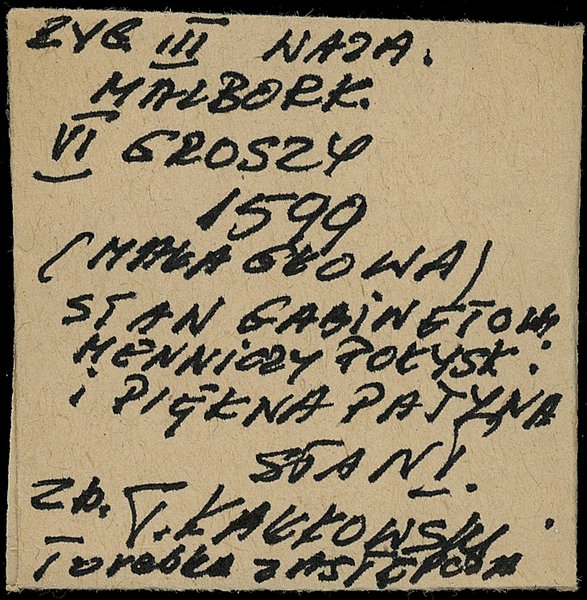 ZYG III WAZA.
MALBORK.
VI GROSZY
1599
(MAŁA GŁOWA)
STAN GABINETOWY
MENNICZY POŁYSK.
i PIĘKNA PATYNA
STAN I.
Zb. T. KAŁKOWSKI.
Torebka ZASTĘPCZA